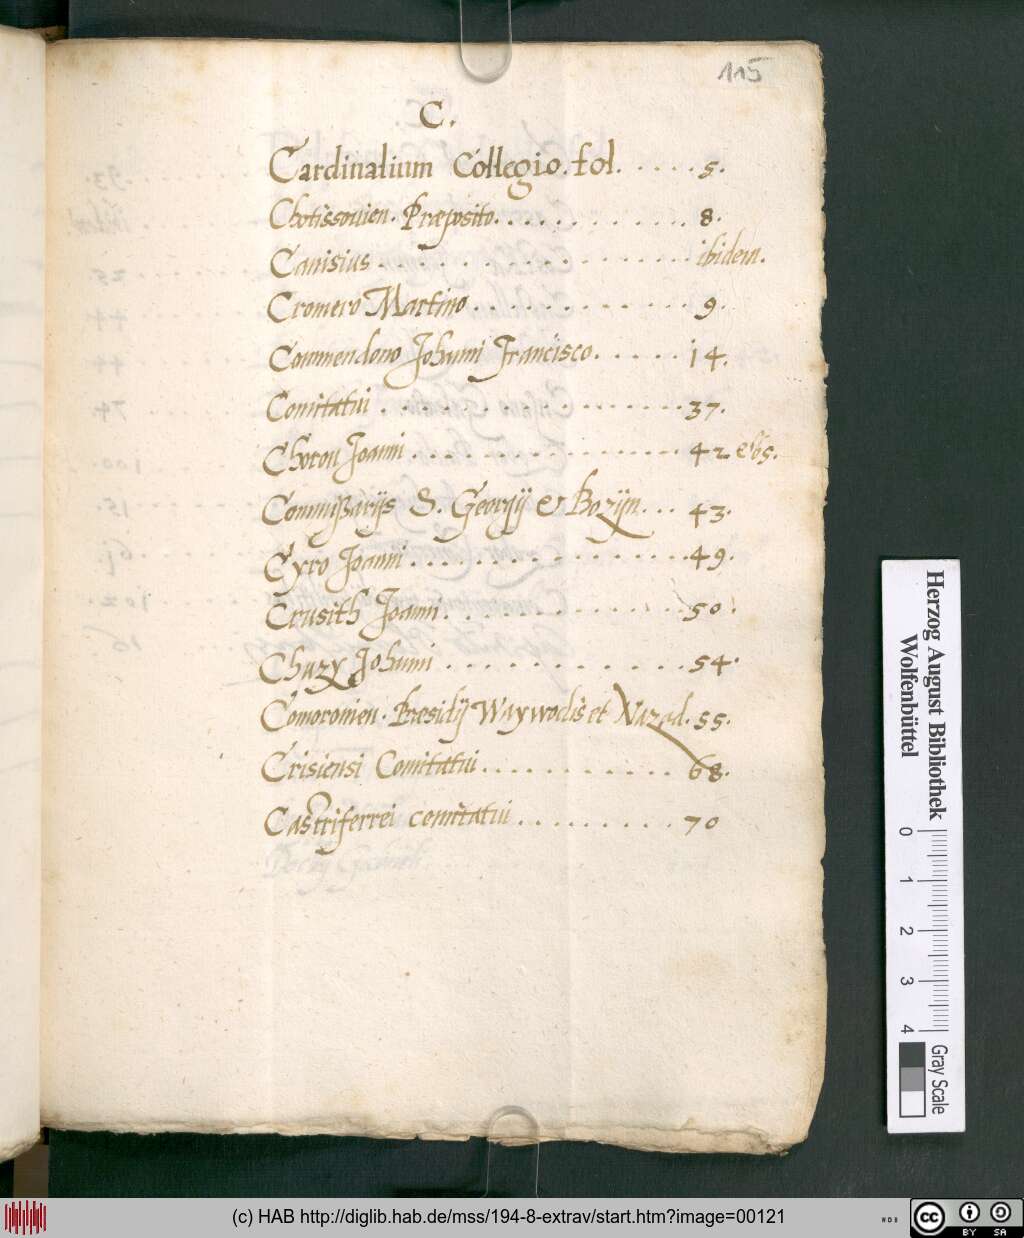 115
C.
Cardinalium Collegio. fol. . . . . . 5.
Chotissovien. Præposito. . . . . . . . . . . . 8.
Canisius . . . . . . . . . . . . . . . ibidem.
Cromero Martino . . . . . . . . . . . . 9.
Commendono Johanni Francisco. . . . . . 14.
Comitatui . . . . . . . . . . . . . . . 37.
Choron Joanni . . . . . . . . . . . . . . . 42. et 65.
Commißarijs S. Georgij et Bozijn. . . . 43.
Cyro Joanni . . . . . . . . . . . . . . . 49.
Crusith Joanni . . . . . . . . . . . . . 50.
Chuzy Johanni . . . . . . . . . . . . 54.
Comoronien. Præsidij Waywodis et Nazad. 55.
Crisiensi Comitatui . . . . . . . . . . . 68.
Castriferrei comitatui . . . . . . . . . 70
Herzog August Bibliothek
Wolfenbüttel
0 1 2 3 4
Gray Scale
(c) HAB http://diglib.hab.de/mss/194-8-extrav/start.htm?image=00121
WDB
cc BY SA